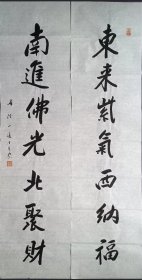 東来紫氣西納福
南進佛光北聚財